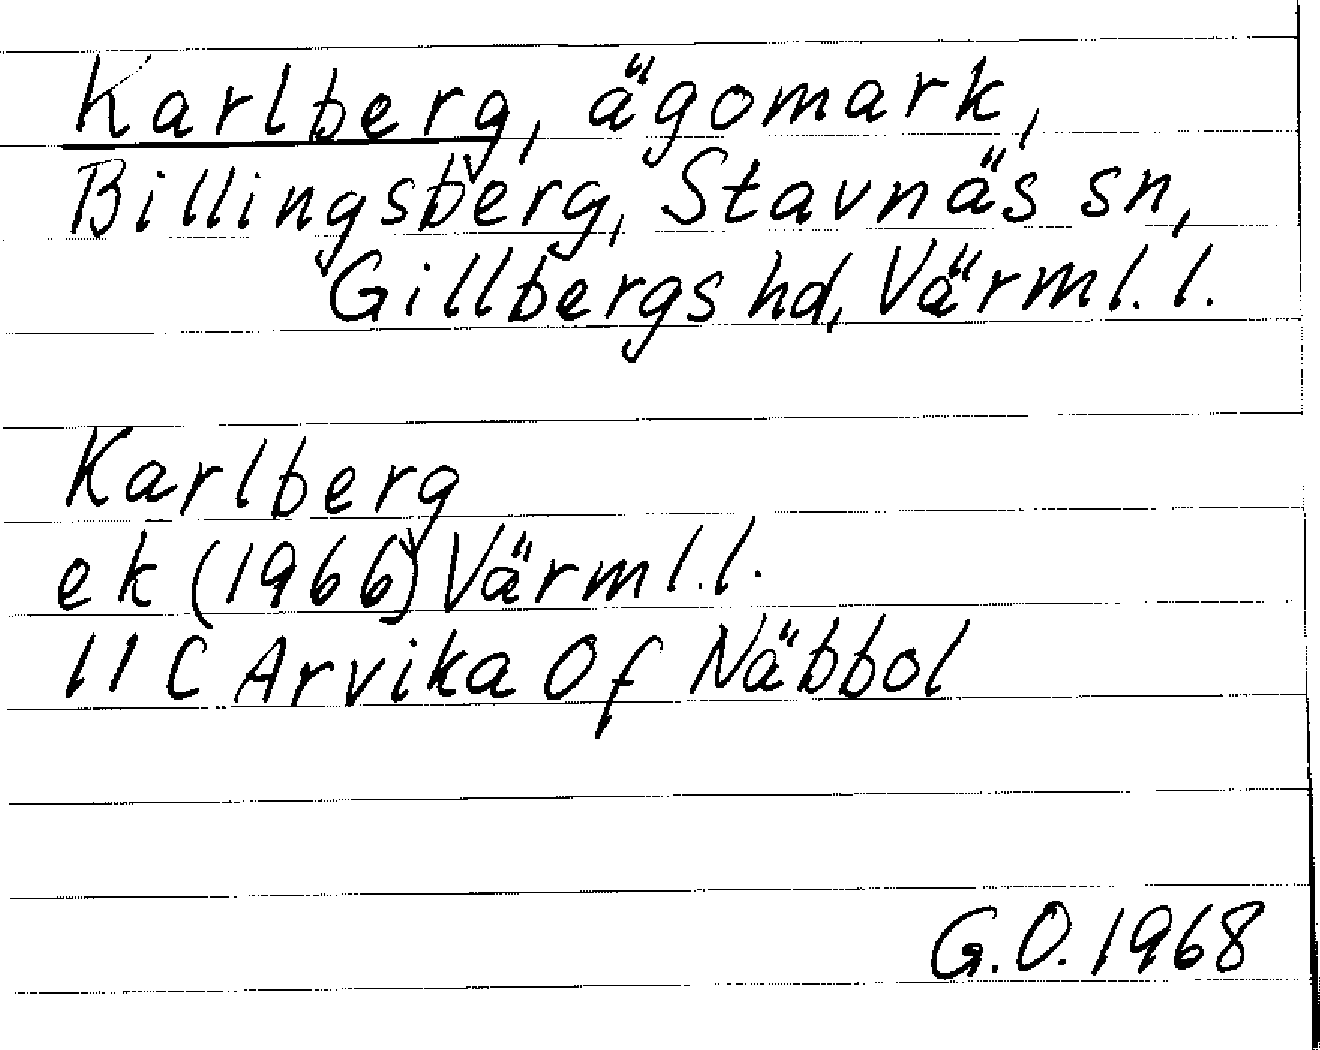 Karlberg, ägomark,
Billingsberg, Stavnäs sn,
Gillbergs hd, Värml. l.
Karlberg
ek (1966) Värml. l.
11 C Arvika 0 f Näbbol
G.O. 1968